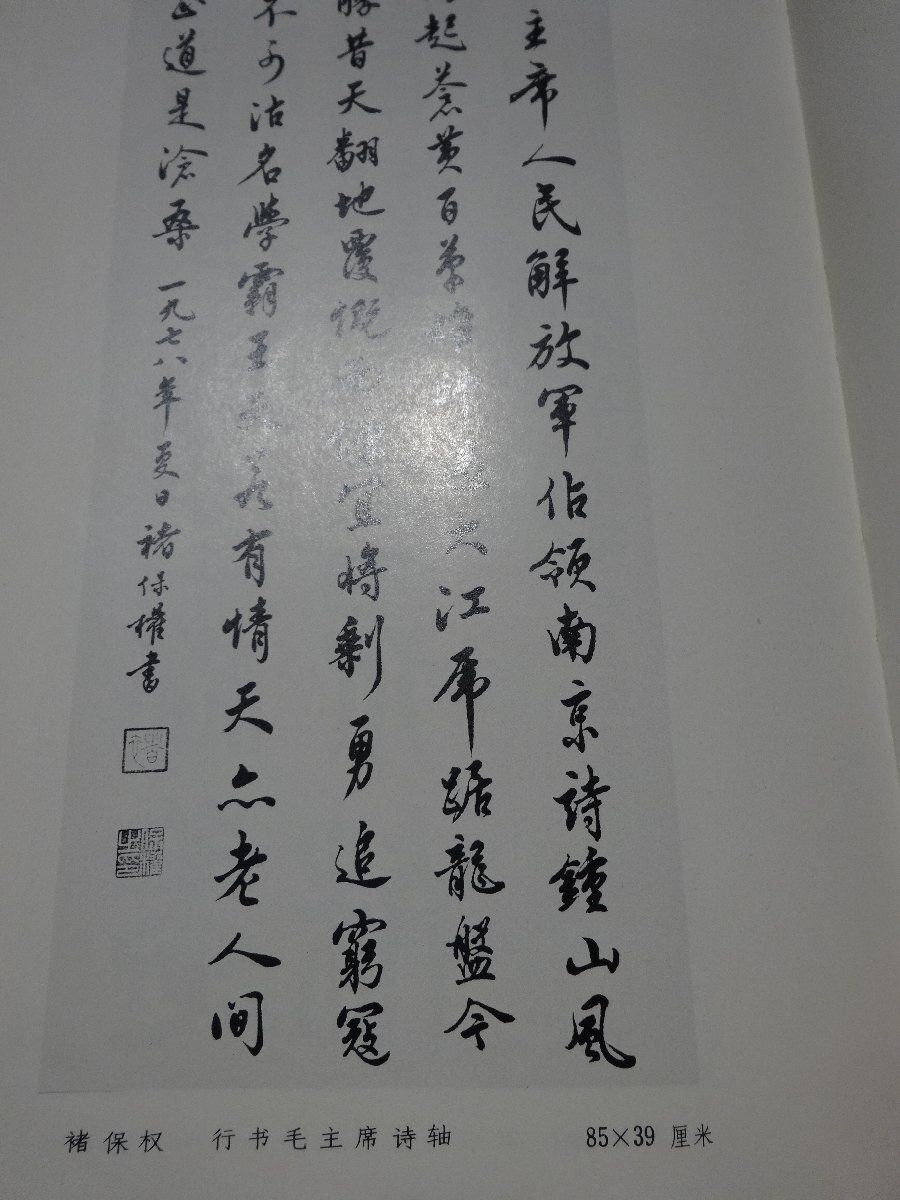 主席人民解放軍佔領南京詩鍾山風
起蒼黄百萬雄大江虎踞龍盤今
勝昔天翻地覆慨而慷宜將剩勇追窮寇
不可沽名學霸王天若有情天亦老人间
正道是滄桑一九七八年夏日褚保權書
褚保权 行书毛主席诗轴 85×39 厘米